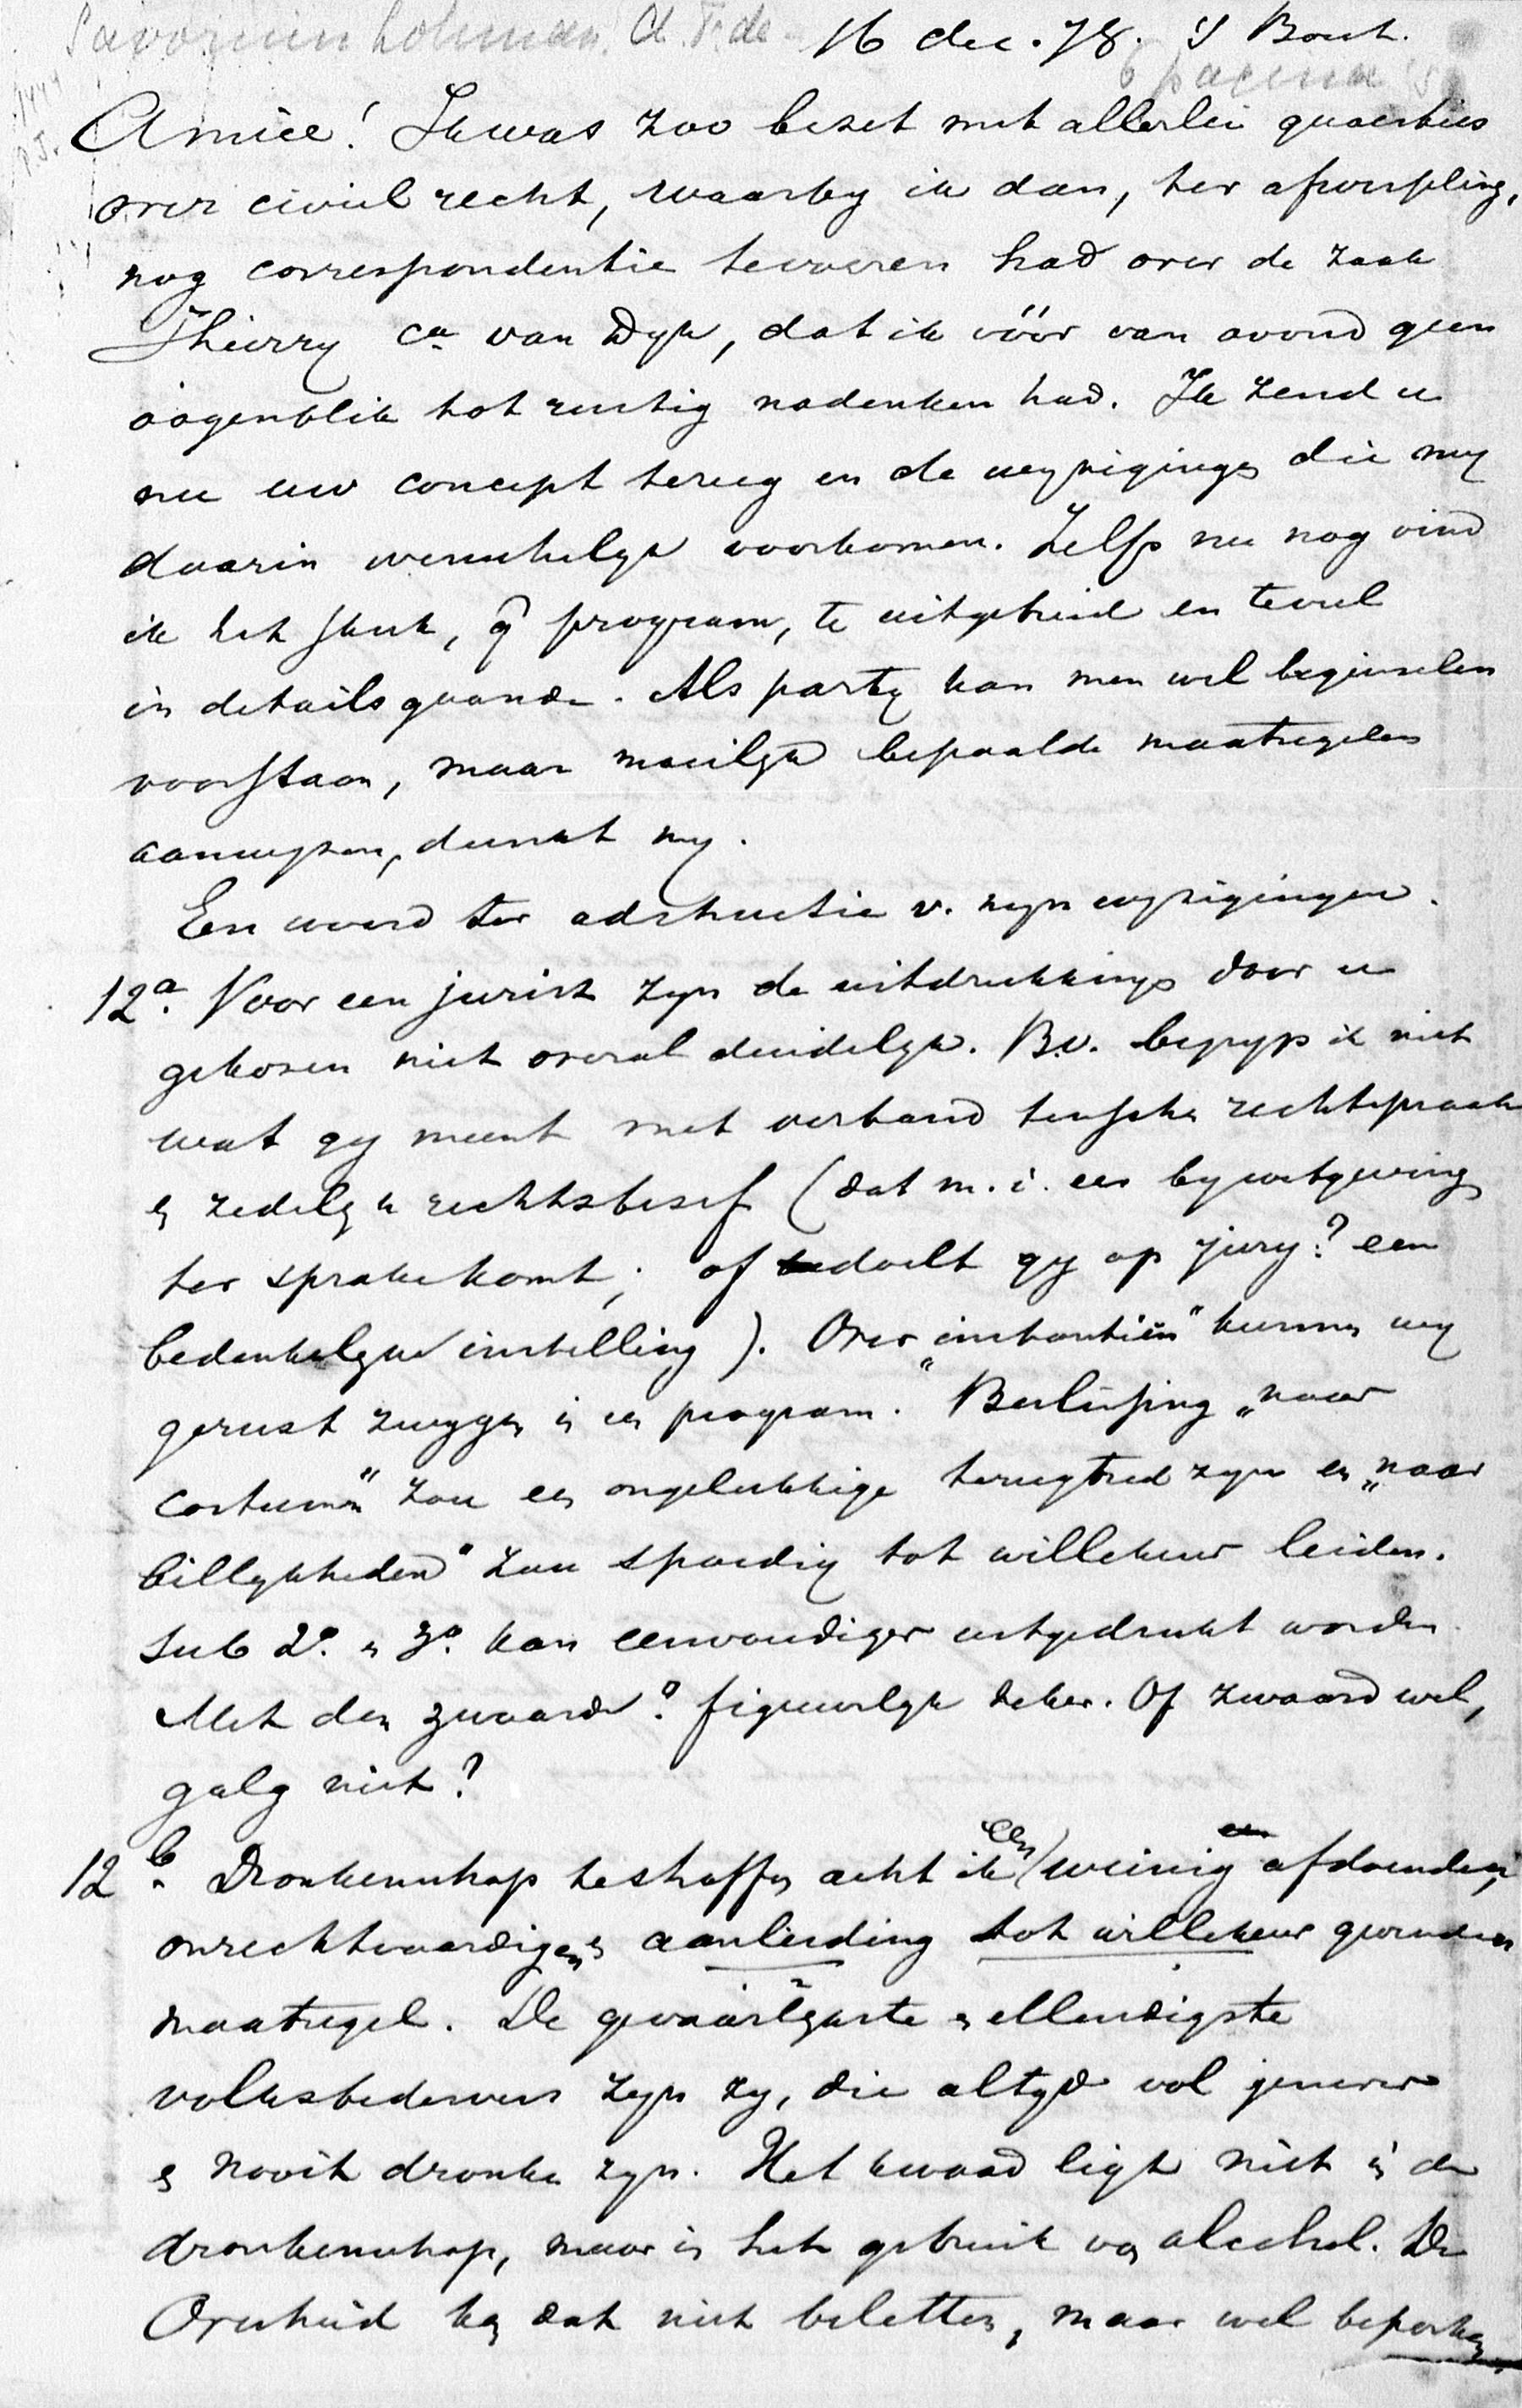 Savornin Lohman, A. F. de 16 dec. 78. 's Bosch.
6 pagina's
Amice! Ik was zoo bezet met allerlei quaesties
over civiel recht, waarby ik dan, ter afwisseling,
nog correspondentie te voeren had over de zaak
Thierry ca van Dyk, dat ik vóór van avond geen
oogenblik tot rustig nadenken had. Ik zend u
nu uw concept terug en de wyzigingen die my
daarin wenschelyk voorkomen. Zelfs nu nog vind
ik het stuk, qq program, te uitgebreid en te veel
in details gaande. Als party kan men wel beginselen
voorstaan, maar moeilyk bepaalde maatregelen
aanwyzen, dunkt my.
Een woord ter adstructie v. myn wyzigingen.
12a. Voor een jurist zyn de uitdrukkingen door u
gekozen niet overal duidelyk. B.v. begryp ik niet
wat gy meent met verband tusschen rechtspraak
en zedelyk rechtsbesef (dat m. i. een by wetgeving
ter sprake komt; of bedoelt gy op jury? een
bedenkelyke instelling). Over „instantiën" kunnen wy
gerust zwygen in een program. Beslissing „naar
costumen" zou een ongelukkige terugtred zyn en „naar
billykheden" zou spoedig tot willekeur leiden.
Sub 2o. en 3o. kan eenvoudiger uitgedrukt worden.
Met den zwaarde? figuurlyk zeker. Of zwaard wel,
galg niet?
12b. Dronkenschap bestraffen acht ik een weinig afdoenden,
onrechtvaardigen en aanleiding tot willekeur gevenden
maatregel. De gevaarlykste en ellendigste
volksbedervers zyn zy, die altyd vol jenever
en nooit dronken zyn. Het kwaad ligt niet in de
dronkenschap, maar in het gebruik van alcohol. De
Overheid kan dat niet beletten, maar wel beperken.